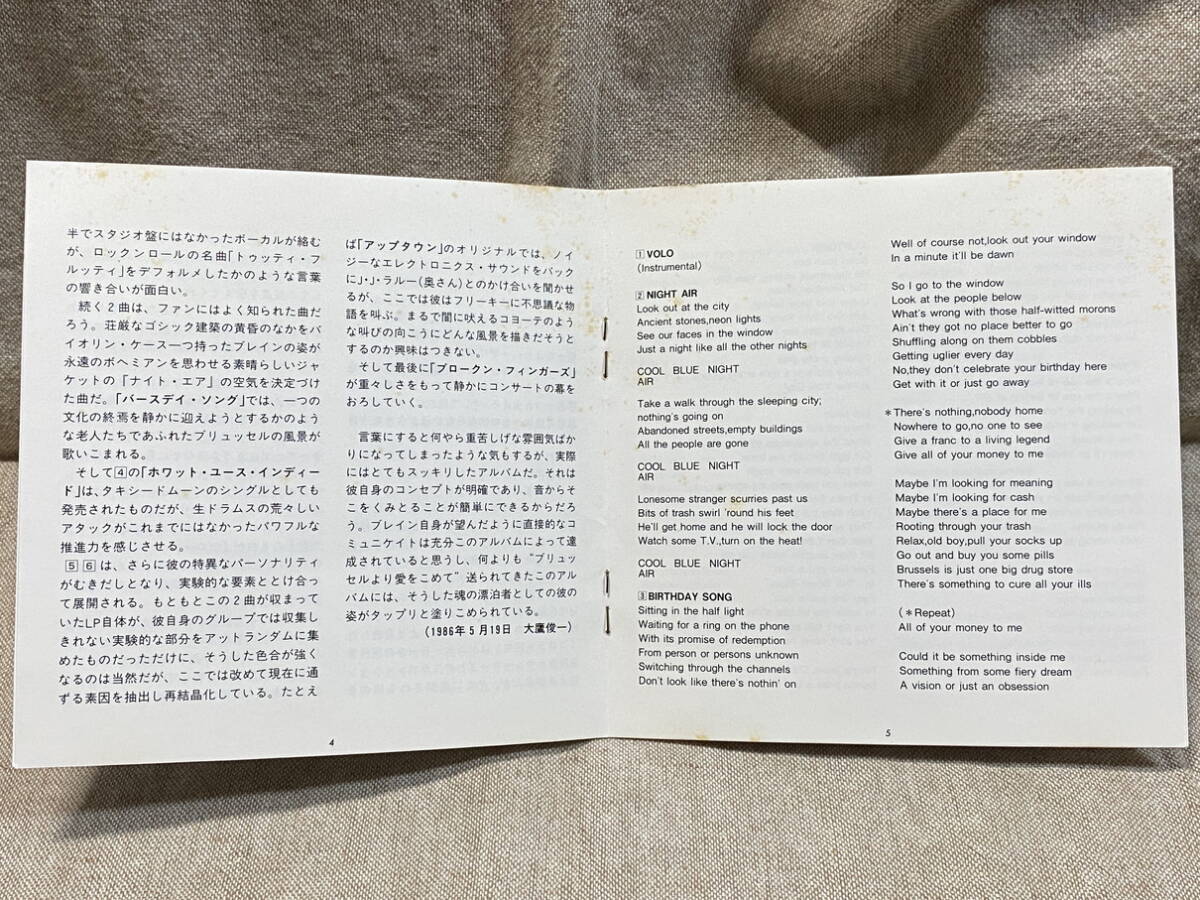 半でスタジオ盤にはなかったボーカルが絡む
が、ロックンロールの名曲「トゥッティ・フ
ルッティ」をデフォルメしたかのような言葉
の響き合いが面白い。
続く2曲は、ファンにはよく知られた曲だ
ろう。荘厳なゴシック建築の黄昏のなかをバ
イオリン・ケース一つ持ったブレインの姿が
永遠のボヘミアンを思わせる素晴らしいジャ
ケットの「ナイト・エア」の空気を決定づけ
た曲だ。「バースデイ・ソング」では、一つの
文化の終焉を静かに迎えようとするかのよう
な老人たちであふれたブリュッセルの風景が
歌いこまれる。
そして4の「ホワット・ユース・インディー
ド」は、タキシードムーンのシングルとしても
発売されたものだが、生ドラムスの荒々しい
アタックがこれまでにはなかったパワフルな
推進力を感じさせる。
5 6は、さらに彼の特異なパーソナリティ
がむきだしとなり、実験的な要素ととけ合っ
て展開される。もともとこの2曲が収まって
いたLP自体が、彼自身のグループでは収集し
きれない実験的な部分をアットランダムに集
めたものだっただけに、そうした色合が強く
なるのは当然だが、ここでは改めて現在に通
ずる素因を抽出し再結晶化している。たとえ
ば「アップタウン」のオリジナルでは、ノイ
ジーなエレクトロニクス・サウンドをバック
にJ・J・ラルー(奥さん)とのかけ合いを聞かせ
るが、ここでは彼はフリーキーに不思議な物
語を叫ぶ。まるで闇に吠えるコヨーテのよう
な叫びの向こうにどんな風景を描きだそうと
するのか興味はつきない。
そして最後に「ブロークン・フィンガーズ」
が重々しさをもって静かにコンサートの幕を
おろしていく。
言葉にすると何やら重苦しげな雰囲気ばか
りになってしまったような気もするが、実際
にはとてもスッキリしたアルバムだ。それは
彼自身のコンセプトが明確であり、音からそ
こをくみとることが簡単にできるからだろ
う。ブレイン自身が望んだように直接的なコ
ミュニケイトは充分このアルバムによって達
成されていると思うし、何よりも“ブリュッ
セルより愛をこめて”送られてきたこのアル
バムには、そうした魂の漂泊者としての彼の
姿がタップリと塗りこめられている。
(1986年5月19日 大鷹俊一)
4
1 VOLO
(Instrumental)
2 NIGHT AIR
Look out at the city
Ancient stones,neon lights
See our faces in the window
Just a night like all the other nights
COOL BLUE NIGHT
AIR
Take a walk through the sleeping city;
nothing's going on
Abandoned streets,empty buildings
All the people are gone
COOL BLUE NIGHT
AIR
Lonesome stranger scurries past us
Bits of trash swirl 'round his feet
He'll get home and he will lock the door
Watch some T.V.,turn on the heat!
COOL BLUE NIGHT
AIR
3 BIRTHDAY SONG
Sitting in the half light
Waiting for a ring on the phone
With its promise of redemption
From person or persons unknown
Switching through the channels
Don't look like there's nothin' on
Well of course not,look out your window
In a minute it'll be dawn
So I go to the window
Look at the people below
What's wrong with those half-witted morons
Ain't they got no place better to go
Shuffling along on them cobbles
Getting uglier every day
No,they don't celebrate your birthday here
Get with it or just go away
*There's nothing,nobody home
Nowhere to go,no one to see
Give a franc to a living legend
Give all of your money to me
Maybe I'm looking for meaning
Maybe I'm looking for cash
Maybe there's a place for me
Rooting through your trash
Relax,old boy,pull your socks up
Go out and buy you some pills
Brussels is just one big drug store
There's something to cure all your ills
(*Repeat)
All of your money to me
Could it be something inside me
Something from some fiery dream
A vision or just an obsession
5